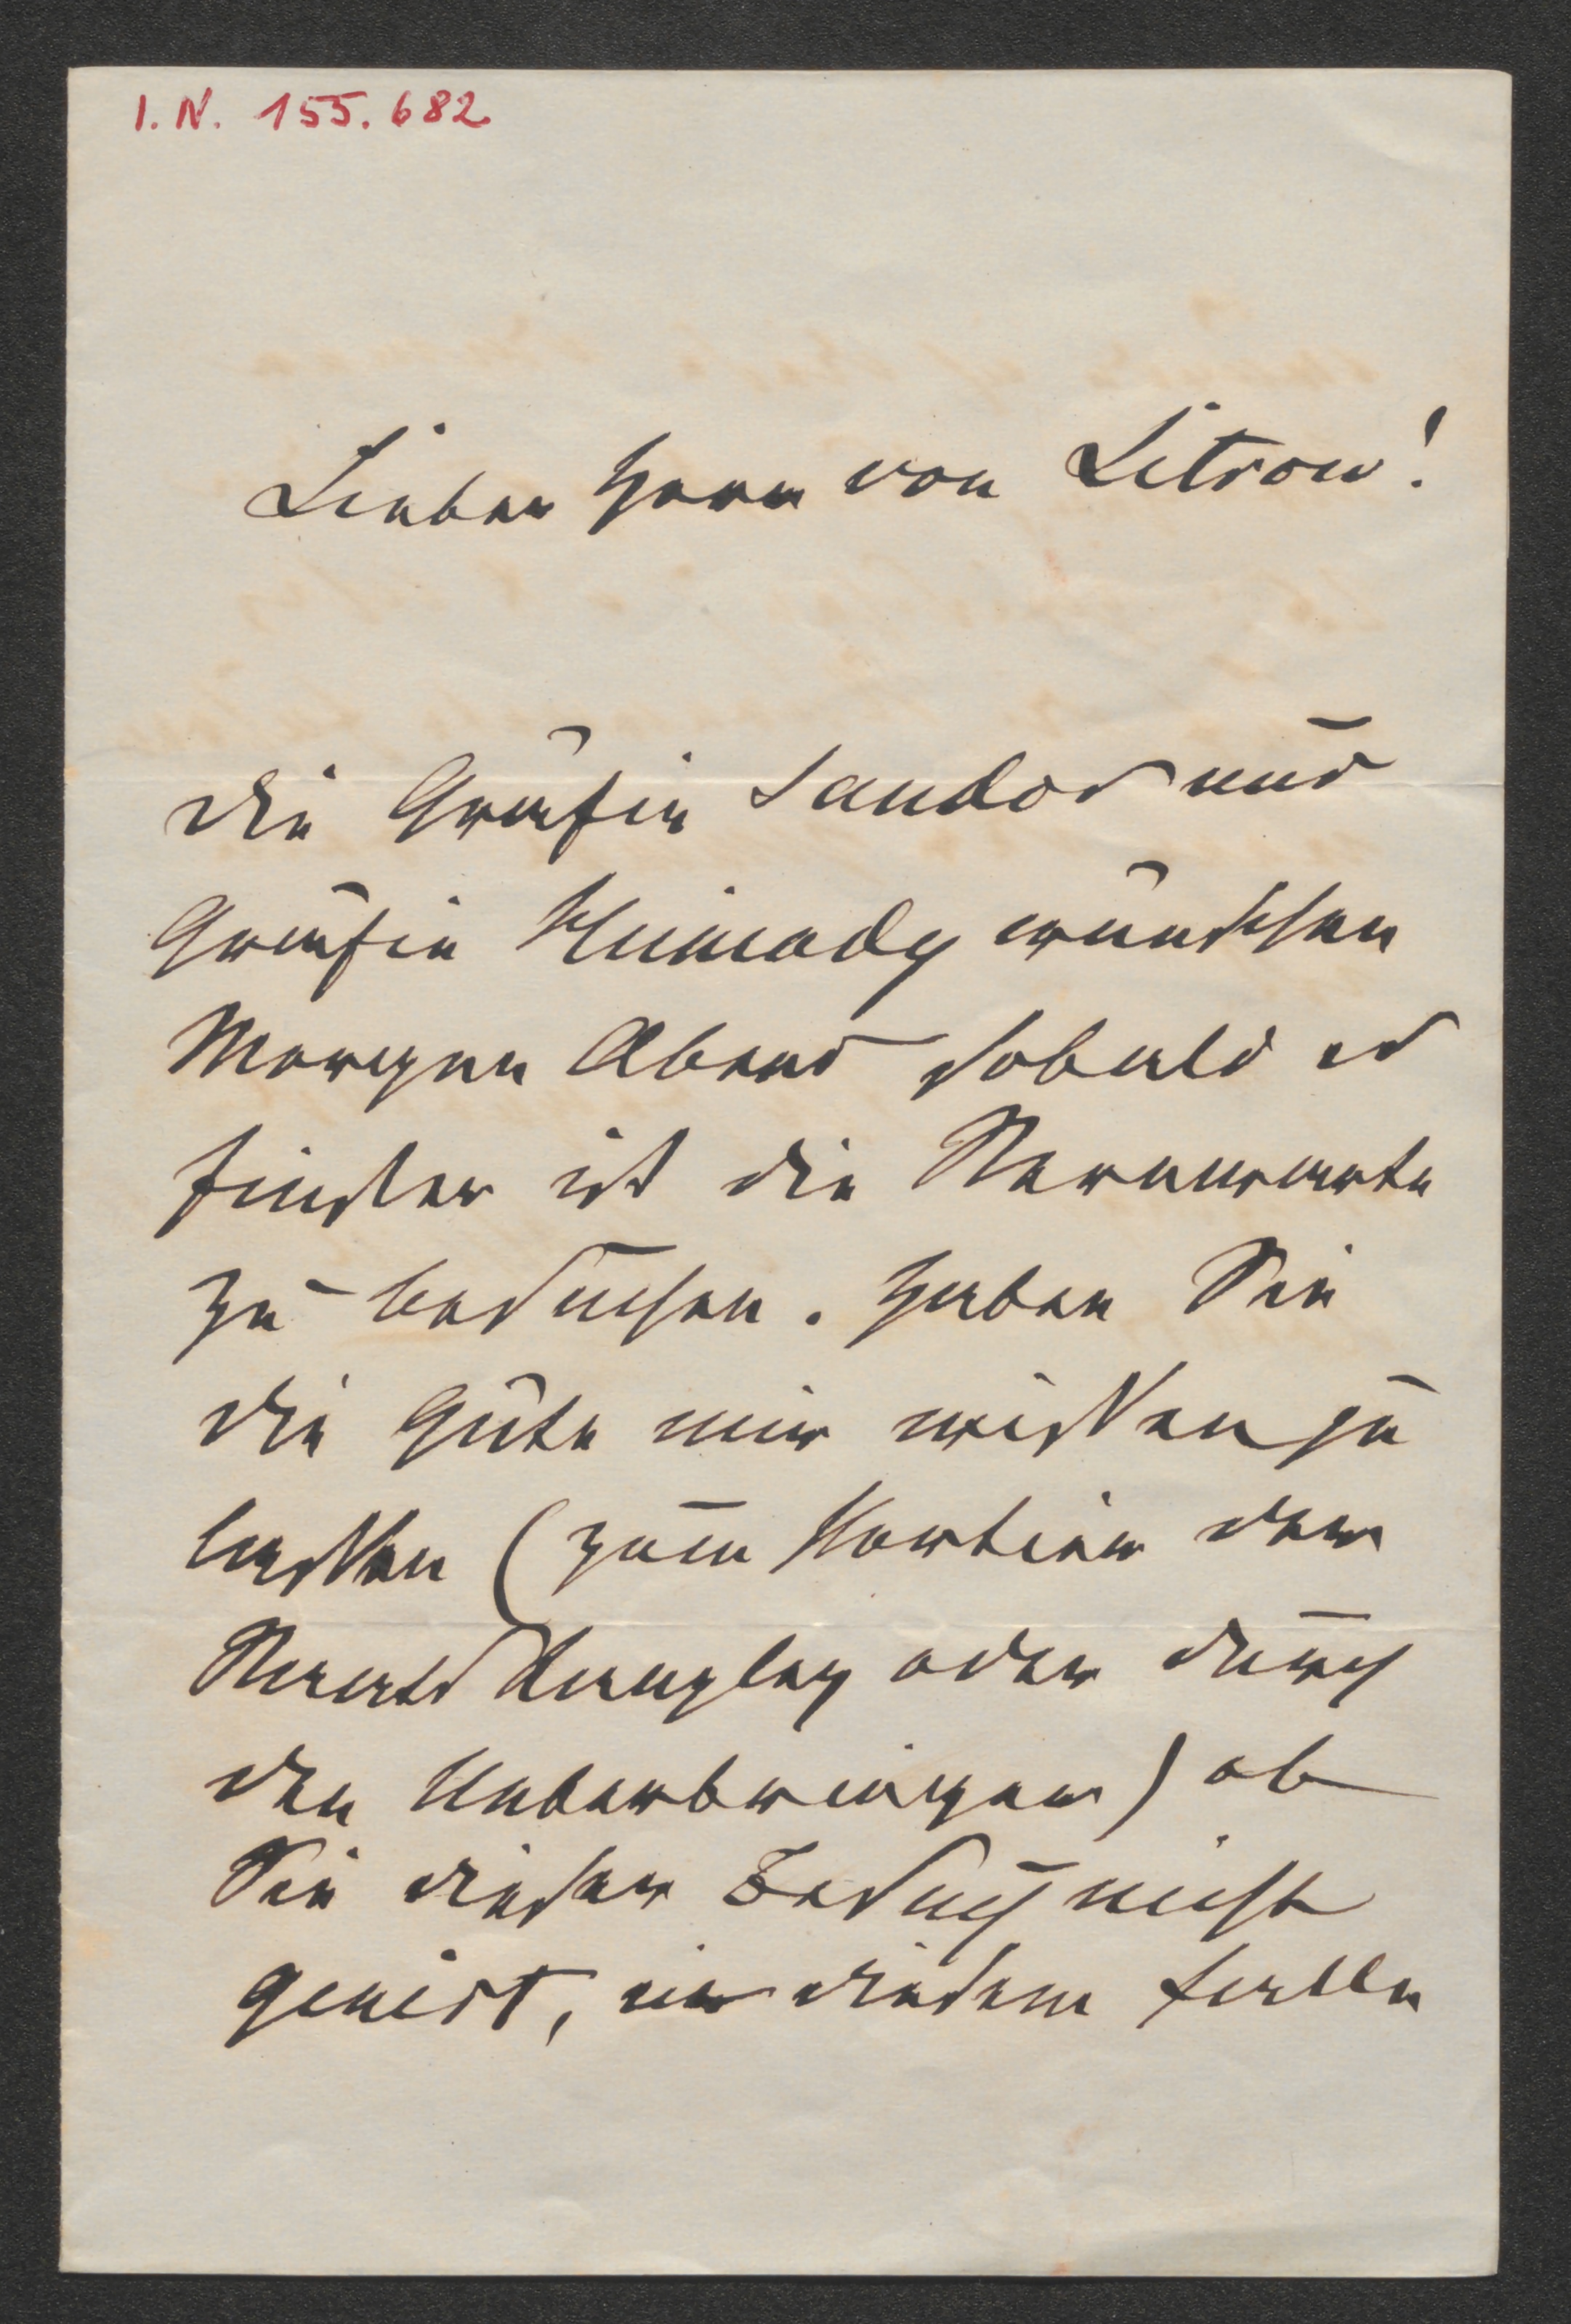 I.N. 155.682
Lieber Herr von Litrow!
die Gräfin Sandor und
Gräfin Huniady wünschen
Morgen Abend sobald es
finster ist die Sternwarte
zu besuchen. Haben Sie
die Güte mir wissen zu
lassen (zum Portier der
Staats Kanzley oder durch
den Ueberbringer) ob
Sie dieser Besuch nicht
genirt, in diesem Falle